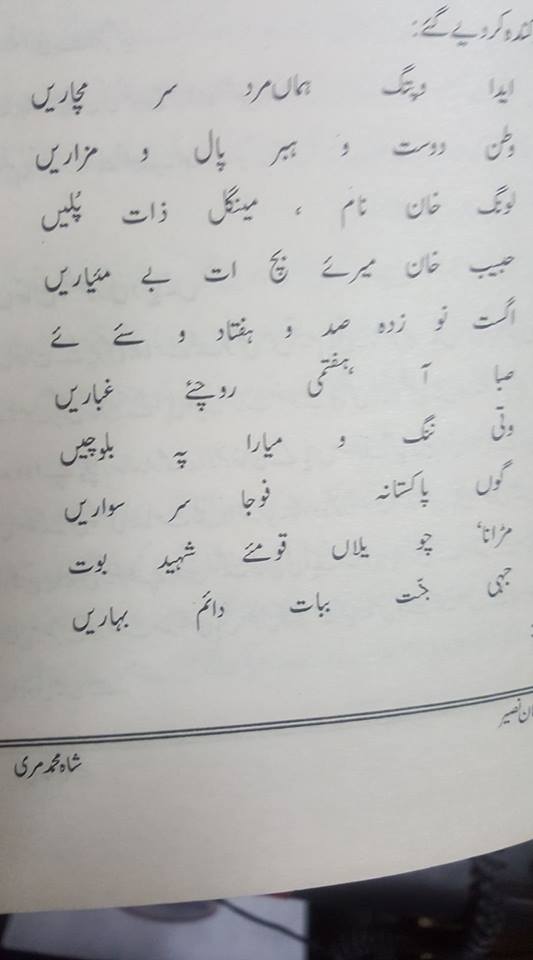 کندہ کر دیے گئے:
ایدا وپتگ ہماں مرد سر مچاریں
وطن دوست و ہبر پال و مزاریں
لونگ خان نام ، مینگل ذات پُلیں
حبیب خان میرئے بچ ات بے مئیاریں
اگست نو زدہ صد و ہفتاد و سئے ئے
صبا آ ہفتمی روچئے غباریں
وتی ننگ و میارا پہ بلوچیں
گوں پاکستانہ فوجا سر سواریں
مڑانا، چو یلاں قومئے شہید بوت
جہمی جنّت ببات دائم بہاریں
نصیر
شاہ محمد مری